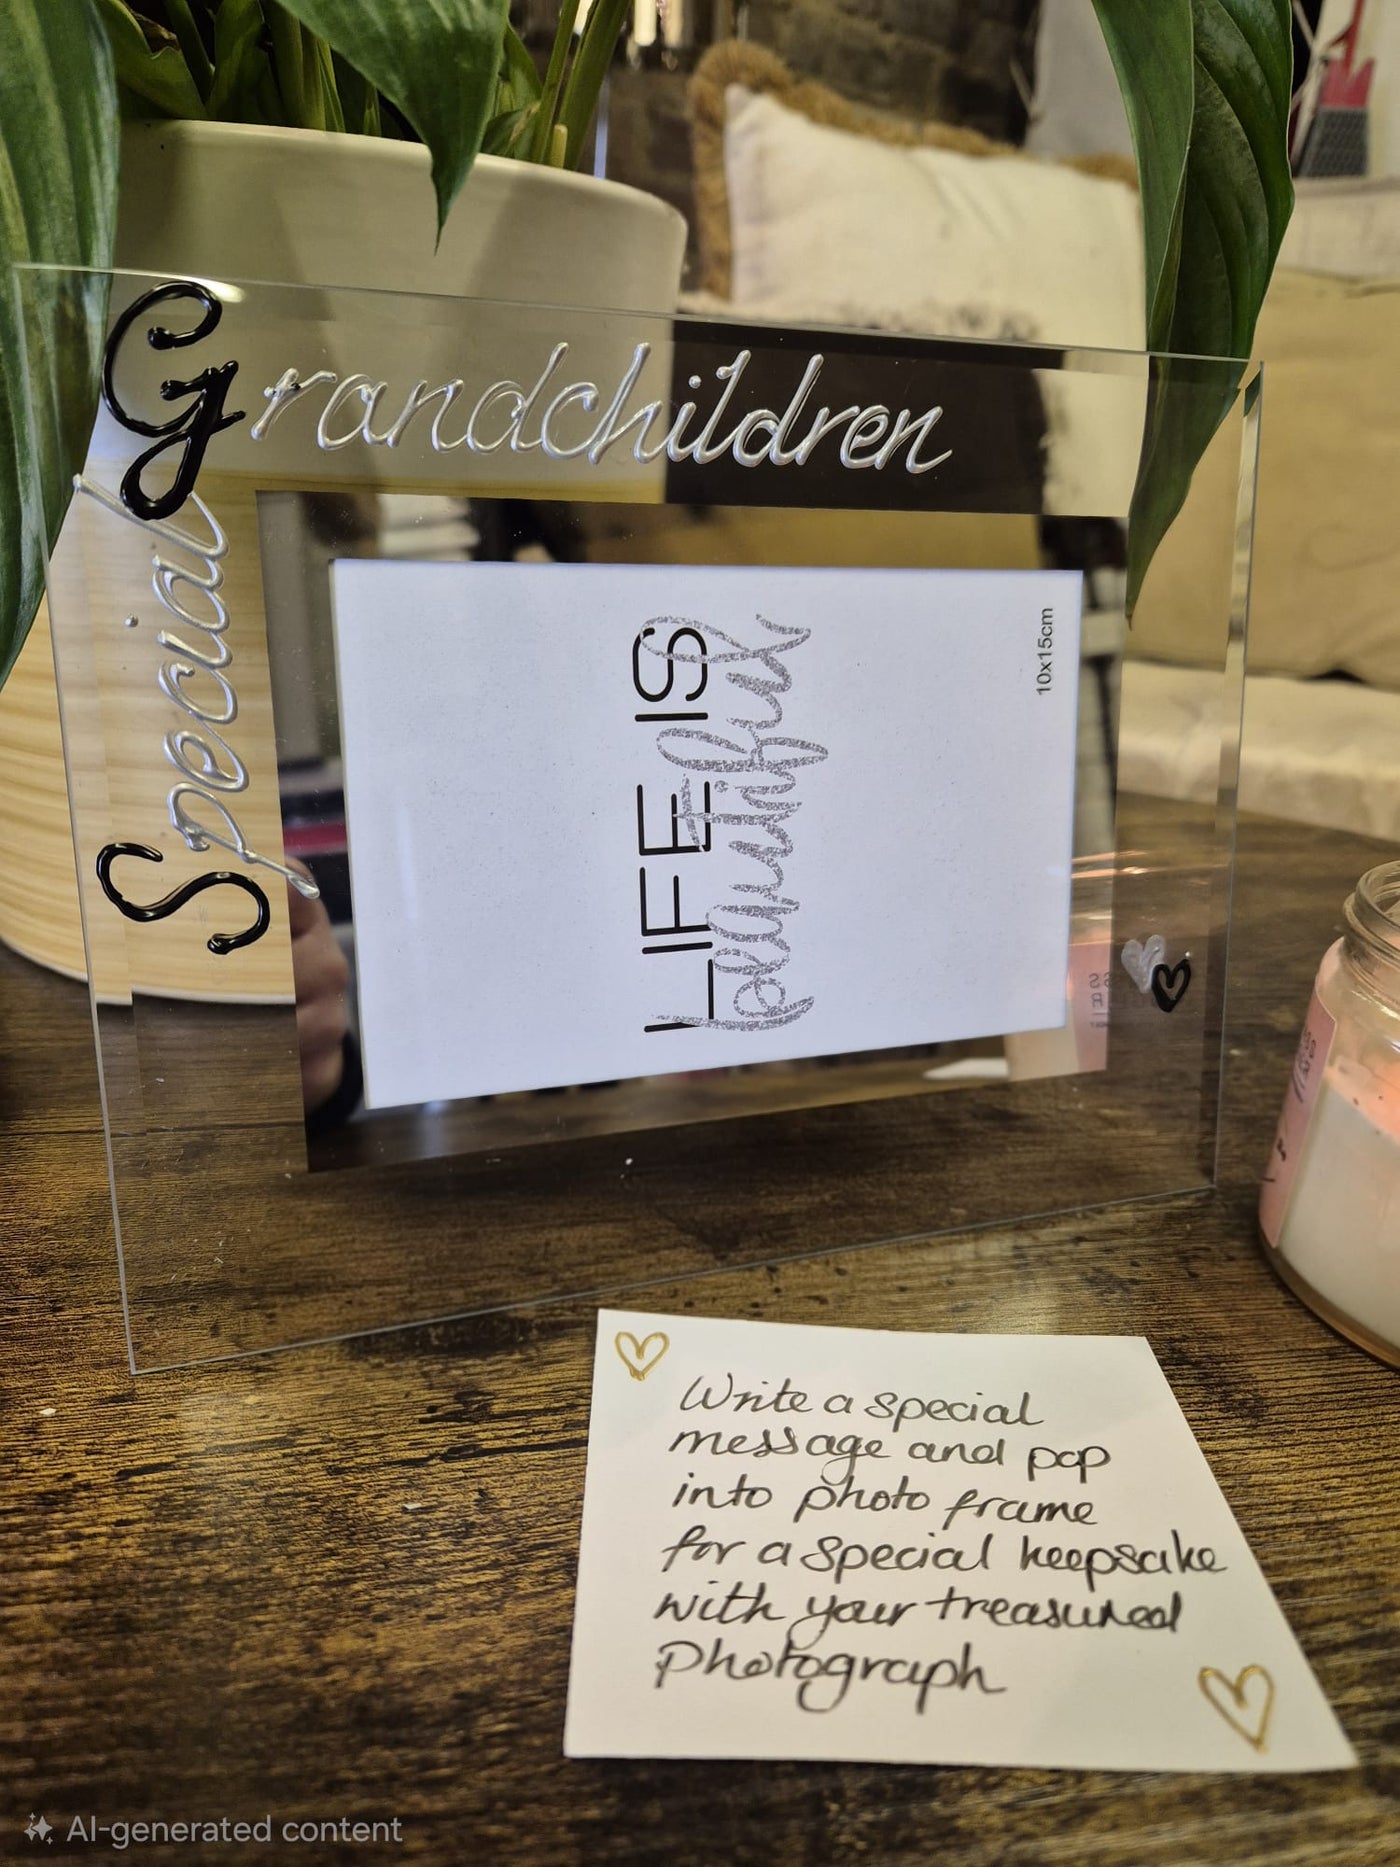 Grandchildren
Special
LIFE IS
beautiful
10x15cm
Write a special
message and pop
into photo frame
for a special keepsake
with your treasured
photograph
AI-generated content